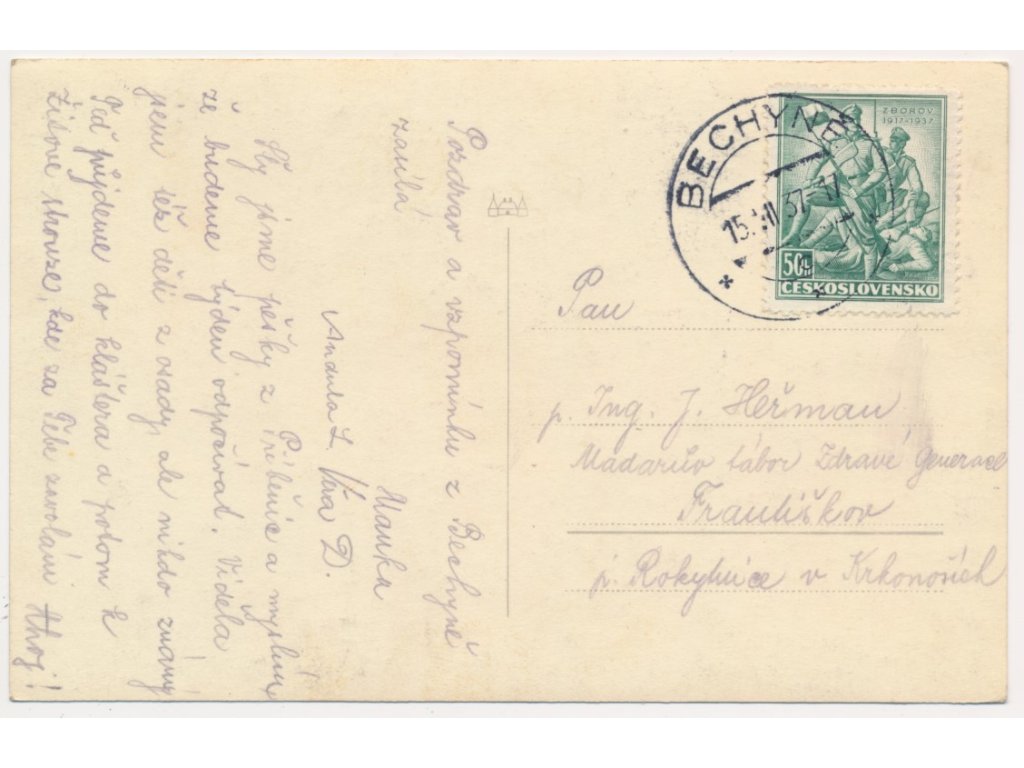 Pozdrav a vzpomínku z Bechyně
zasílá
Manka
Andula L. Věra D.
Šly jsme pěšky z Příběnic a myslím,
že budeme týden odpočívat. Viděla
jsem též děti z osady, ale nikdo známý
Teď půjdeme do kláštera a potom k
Židově strouze, kde za Tebe zavolám Ahoj!
BECHYNĚ
37-17
ZBOROV
1917-1937
50 h
ČESKOSLOVENSKO
Pan
p. Ing. J. Heřman
Madarův tábor Zdravé Generace
Františkov
p. Rokytnice v Krkonoších